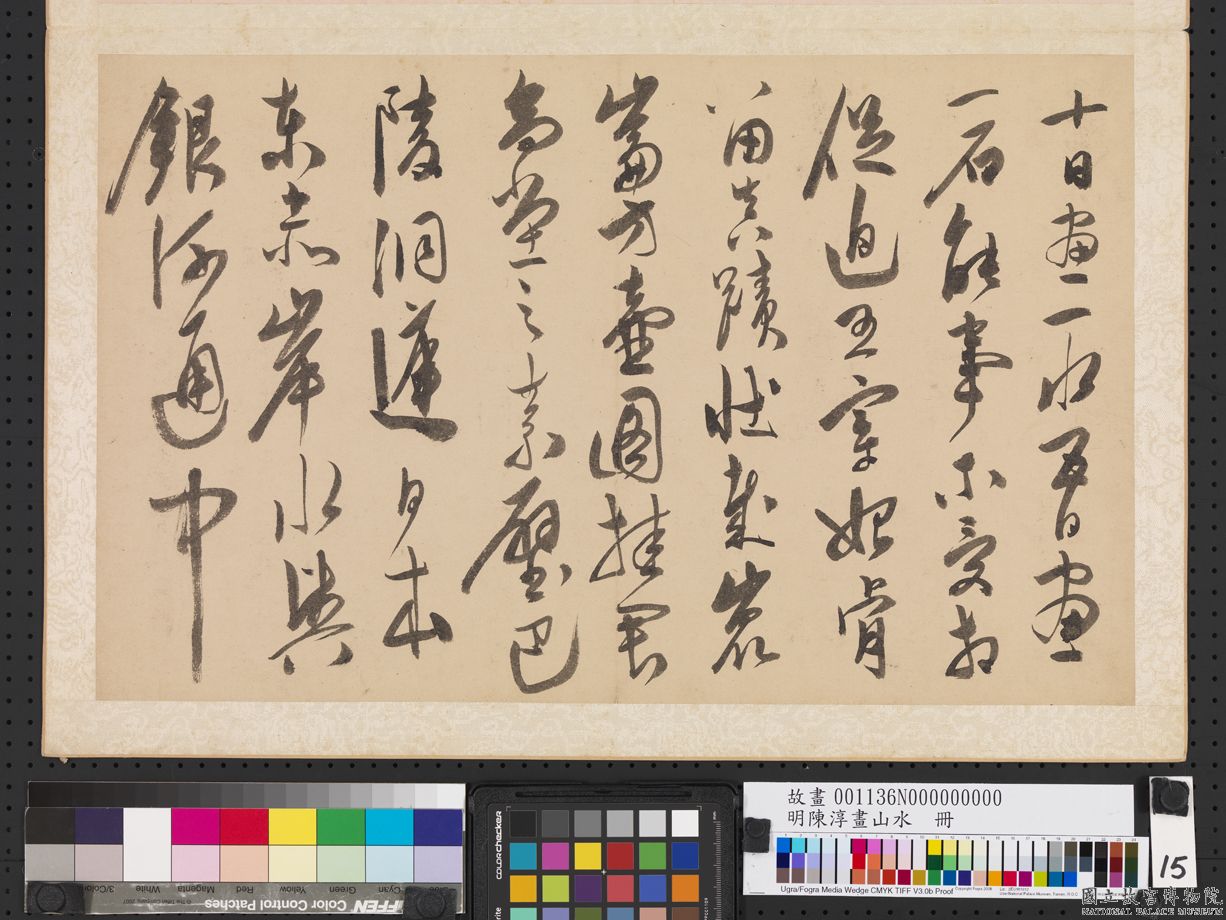 十日畫一水五日畫
一石能事不受相
促迫王宰始肯
留真蹟壯哉崑
崙方壺圖挂君
高堂之素壁巴
陵洞庭日本
東赤岸水與
銀河通中
故畫 001136N000000000
明陳淳畫山水 冊
Ugra/Fogra Media Wedge CMYK TIFF V3.0b Proof
15
colorchecker
Color Control Patches
Cyan Green Yellow Red Magenta White 3/Color
國立故宮博物院
NATIONAL PALACE MUSEUM